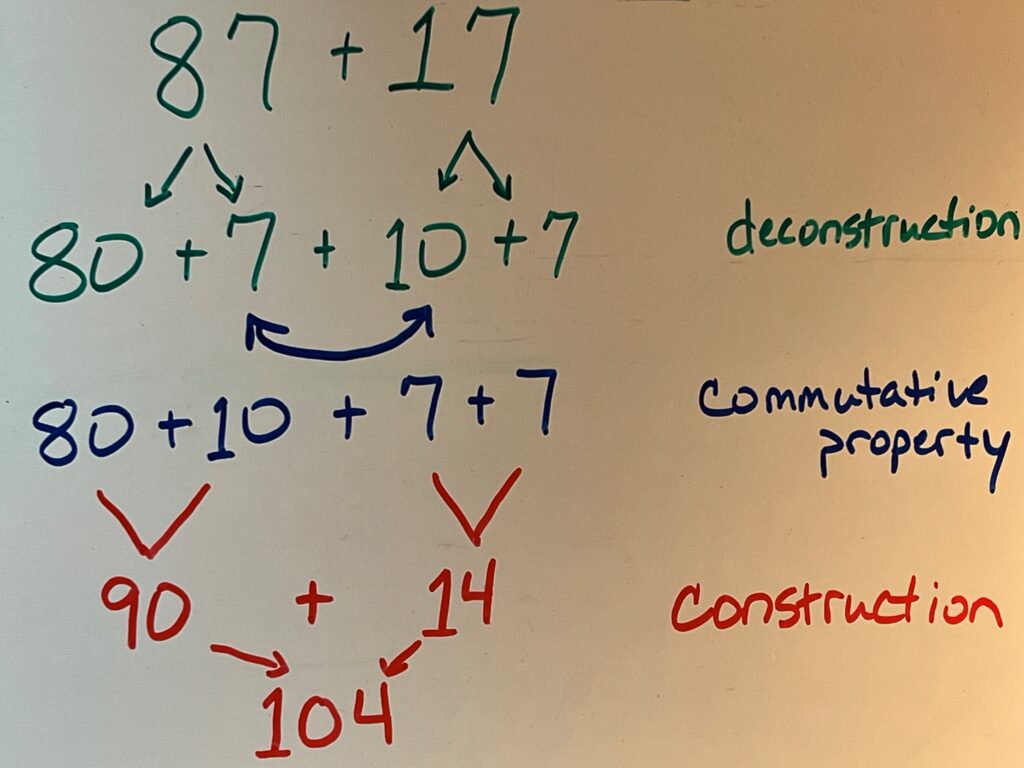 87 + 17
80 + 7 + 10 + 7 deconstruction
80 + 10 + 7 + 7 commutative
property
90 + 14 construction
104